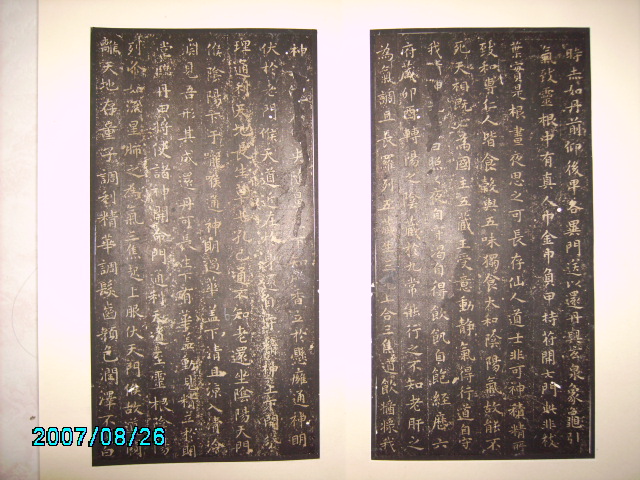 時念如丹前仰後卑各異門送以還丹與玄泉象龜引
氣致靈根中有真人巾金巾負甲持符開七門此非枝
葉實是根晝夜思之可長存仙人道士非可神積精所
致和專仁人皆食穀與五味獨食太和陰陽氣故能不
死天相既心為國主五藏王受意動靜氣得行道自守
我神日照夜自守渴自得飲飢自飽經歷六
府藏卯酉轉陽之陰藏於九常能行之不知老肝之
為氣調且長羅列五藏生三上合三焦道飲漿我
神央知香立於懸癰通神明
伏於老門候天道近在於身還自守精神上下開分
理通利天地長生草七孔已通不知老還坐陰陽天門
候陰陽下于嚨喉通神明過華蓋下清且涼入清泠
淵見吾形其成還丹可長生下有華蓋動腎精立於明
堂臨丹田將使諸神開命門通利天道至靈根陰陽
列布如流星肺之為氣三焦起上服伏天門候故道闚
離天地存童子調利精華調髮齒顏色潤澤不復白
2007/08/26